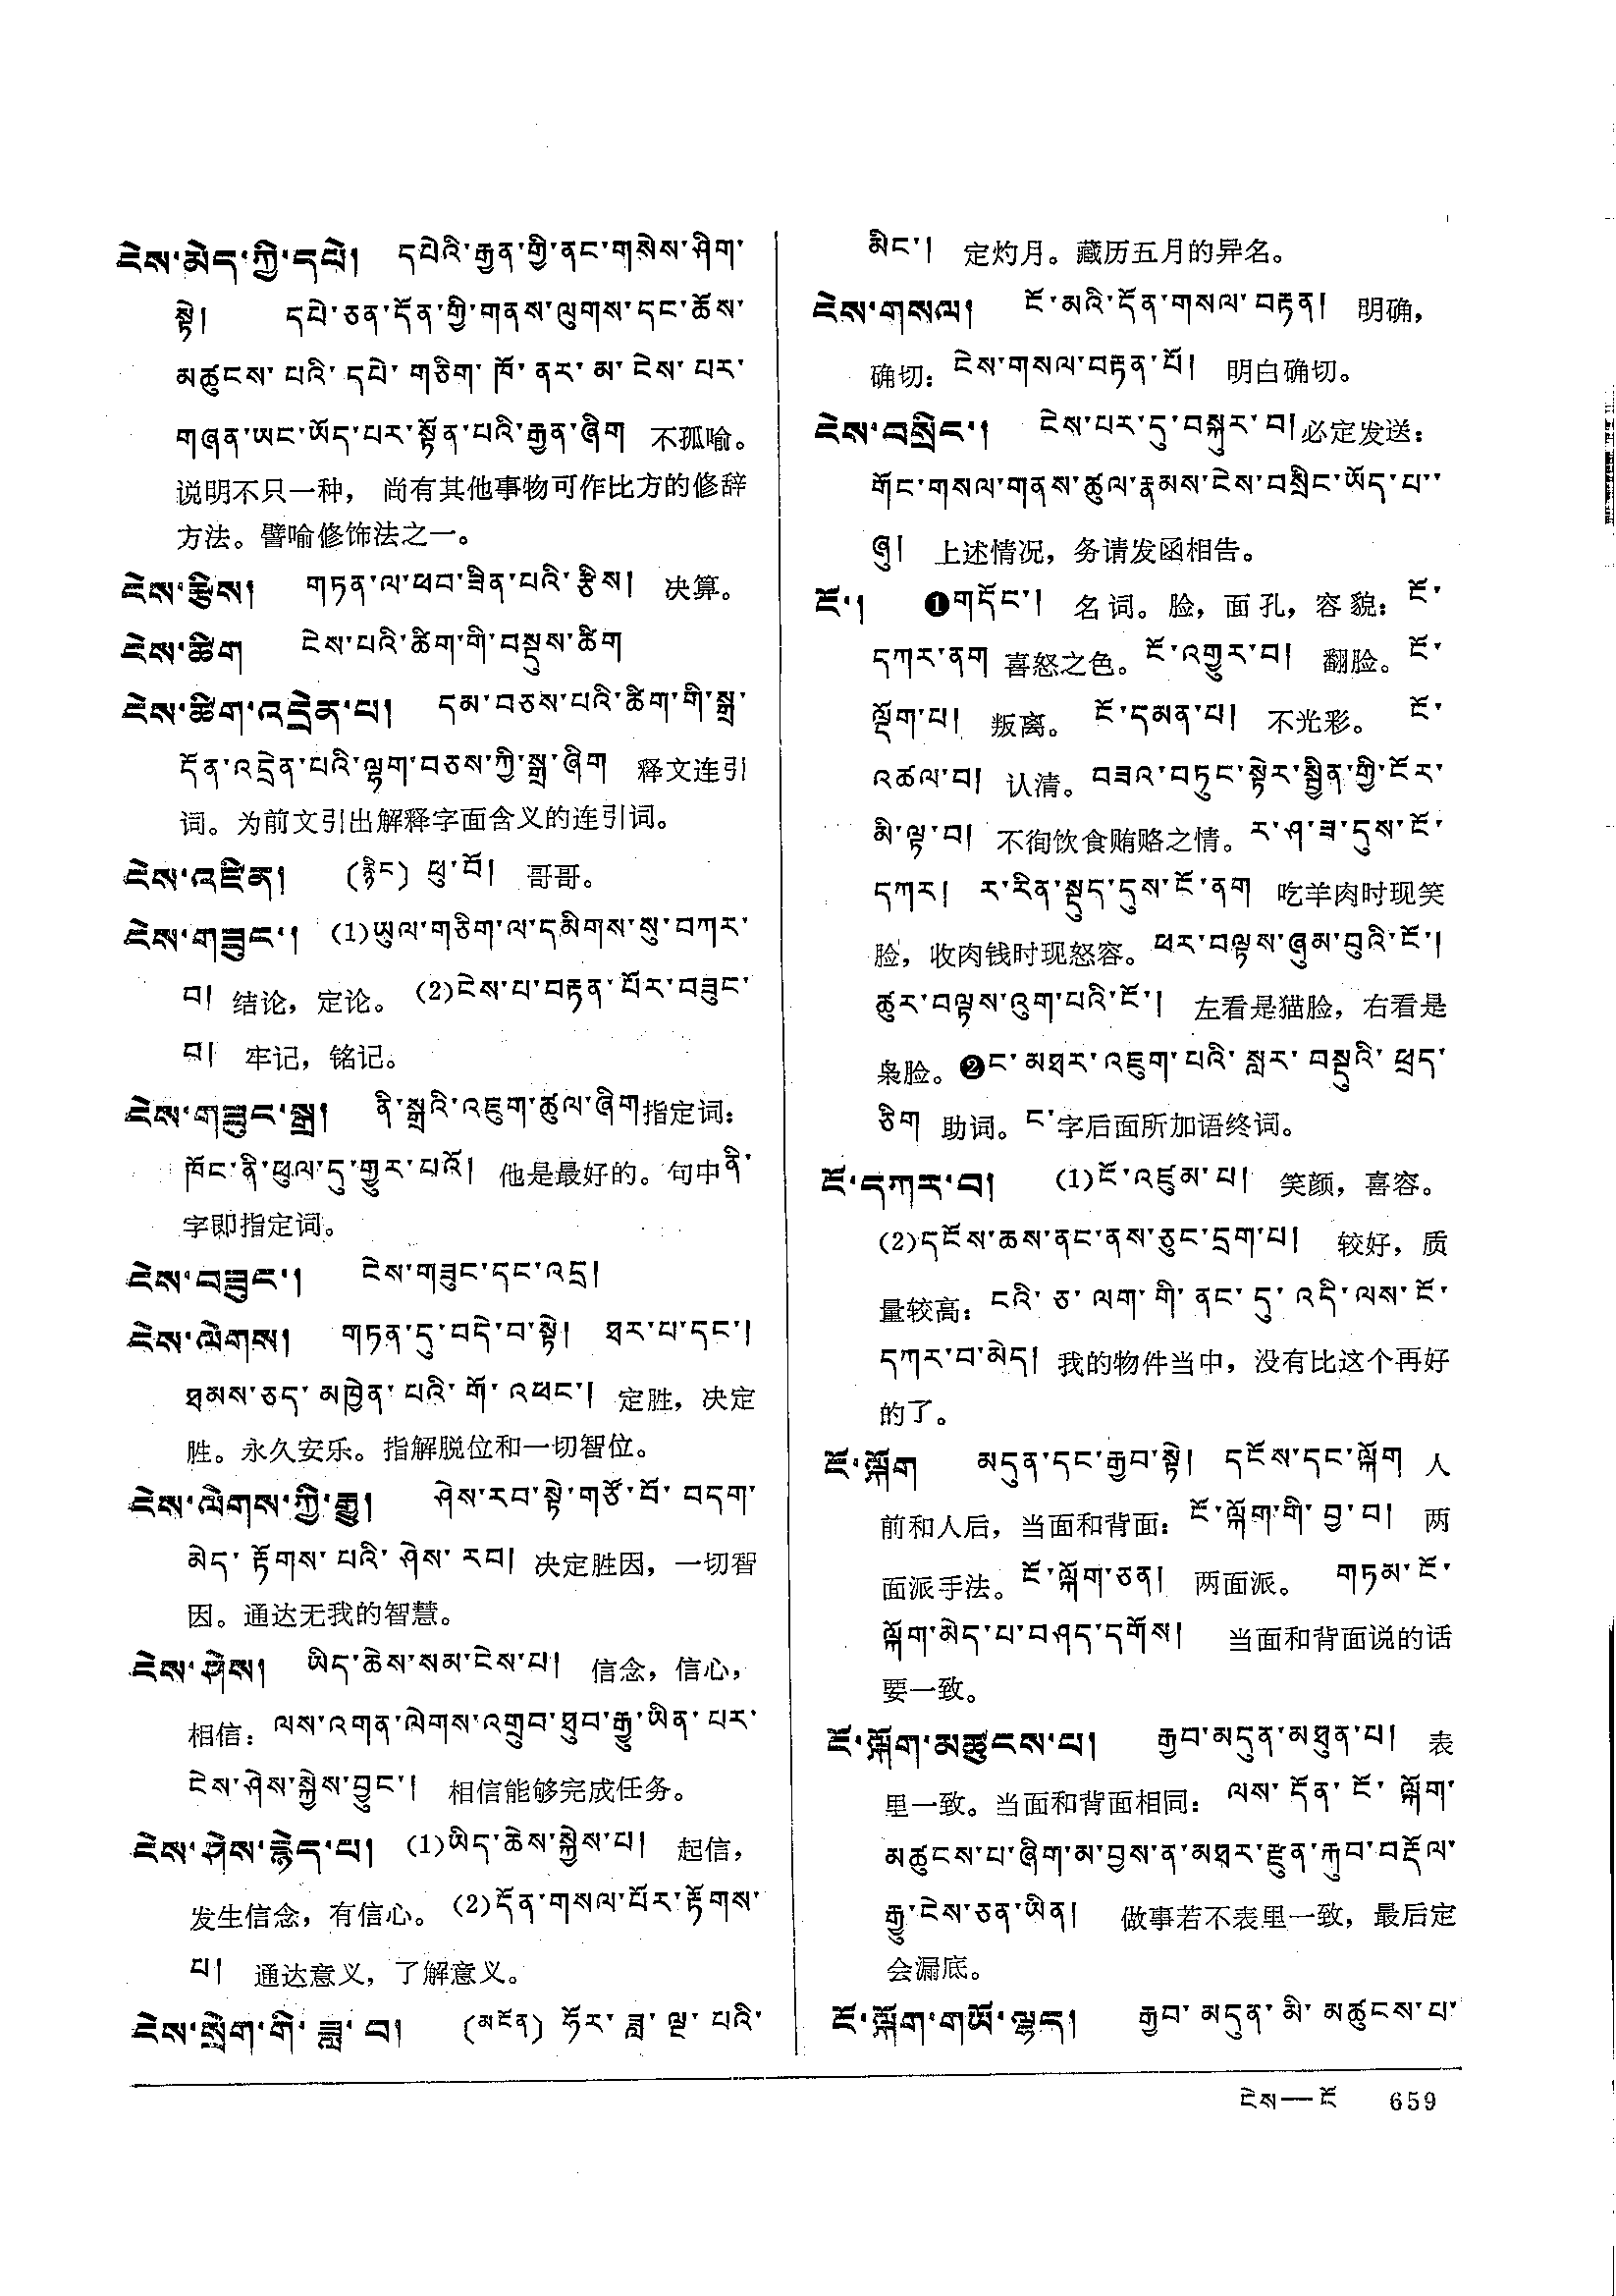 ངེས་མེད་ཀྱི་དཔེ། དཔེའི་རྒྱན་གྱི་ནང་གསེས་ཤིག་
སྟེ། དཔེ་ཅན་དོན་གྱི་གནས་ལུགས་དང་ཆོས་
མཚུངས་པའི་དཔེ་གཅིག་ཁོ་ནར་མ་ངེས་པར་
གཞན་ཡང་ཡོད་པར་སྟོན་པའི་རྒྱན་ཞིག 不孤喻。
说明不只一种， 尚有其他事物可作比方的修辞
方法。譬喻修饰法之一。
ངེས་རྩིས། གཏན་ལ་ཕབ་ཟིན་པའི་རྩིས། 决算。
ངེས་ཚིག ངེས་པའི་ཚིག་གི་བསྡུས་ཚིག
ངེས་ཚིག་འདྲེན་པ། དམ་བཅས་པའི་ཚིག་གི་སྒྲ་
དོན་འདྲེན་པའི་ལྷག་བཅས་ཀྱི་སྒྲ་ཞིག 释文连引
词。为前文引出解释字面含义的连引词。
ངེས་འཛིན། (རྙིང) ཕུ་བོ། 哥哥。
ངེས་གཟུང་། (1)ཡུལ་གཅིག་ལ་དམིགས་སུ་བཀར་
བ། 结论，定论。 (2)ངེས་པ་བརྟན་པོར་བཟུང་
བ། 牢记，铭记。
ངེས་གཟུང་སྒྲ། ནི་སྒྲའི་འཇུག་ཚུལ་ཞིག指定词：
ཁོང་ནི་ཕུལ་དུ་གྱུར་པའོ། 他是最好的。句中ནི་
字即指定词。
ངེས་བཟུང་། ངེས་གཟུང་དང་འདྲ།
ངེས་ལེགས། གཏན་དུ་བདེ་བ་སྟེ། ཐར་པ་དང་།
ཐམས་ཅད་མཁྱེན་པའི་གོ་འཕང་། 定胜，决定
胜。永久安乐。指解脱位和一切智位。
ངེས་ལེགས་ཀྱི་རྒྱུ། ཤེས་རབ་སྟེ་གཙོ་བོ་བདག་
མེད་རྟོགས་པའི་ཤེས་རབ། 决定胜因，一切智
因。通达无我的智慧。
ངེས་ཤེས། ཡིད་ཆེས་སམ་ངེས་པ། 信念，信心，
相信：ལས་འགན་ལེགས་འགྲུབ་ཐུབ་རྒྱུ་ཡིན་པར་
ངེས་ཤེས་སྐྱེས་བྱུང་། 相信能够完成任务。
ངེས་ཤེས་རྙེད་པ། (1)ཡིད་ཆེས་སྐྱེས་པ། 起信，
发生信念，有信心。(2)དོན་གསལ་པོར་རྟོགས་
པ། 通达意义，了解意义。
ངེས་སྲེག་གི་ཟླ་བ། (མངོན) ཧོར་ཟླ་ལྔ་པའི་
མིང་། 定灼月。藏历五月的异名。
ངེས་གསལ། ངོ་མའི་དོན་གསལ་བརྟན། 明确，
确切：ངེས་གསལ་བརྟན་པོ། 明白确切。
ངེས་བསྲིང་། ངེས་པར་དུ་བསྐུར་བ།必定发送：
གོང་གསལ་གནས་ཚུལ་རྣམས་ངེས་བསྲིང་ཡོད་པ་་
ཞུ། 上述情况，务请发函相告。
ངོ་། ❶གདོང་། 名词。脸，面孔，容貌：ངོ་
དཀར་ནག 喜怒之色。ངོ་འགྱུར་བ། 翻脸。ངོ་
ལྡོག་པ། 叛离。 ངོ་དམན་པ། 不光彩。 ངོ་
འཚལ་བ། 认清。བཟའ་བཏུང་སྟེར་སྦྱིན་གྱི་ངོར་
མི་ལྟ་བ། 不徇饮食贿赂之情。ར་ཤ་ཟ་དུས་ངོ་
དཀར། ར་རིན་སྡུད་དུས་ངོ་ནག 吃羊肉时现笑
脸，收肉钱时现怒容。ཕར་བལྟས་ཞུམ་བུའི་ངོ་།
ཚུར་བལྟས་འུག་པའི་ངོ་། 左看是猫脸，右看是
枭脸。❷ང་མཐར་འཇུག་པའི་སླར་བསྡུའི་ཕྲད་
ཅིག 助词。ང་字后面所加语终词。
ངོ་དཀར་བ། (1)ངོ་འཛུམ་པ། 笑颜，喜容。
(2)དངོས་ཆས་ནང་ནས་ཅུང་དྲག་པ། 较好，质
量较高：ངའི་ཅ་ལག་གི་ནང་དུ་འདི་ལས་ངོ་
དཀར་བ་མེད། 我的物件当中，没有比这个再好
的了。
ངོ་ལྐོག མདུན་དང་རྒྱབ་སྟེ། དངོས་དང་ལྐོག 人
前和人后，当面和背面：ངོ་ལྐོག་གི་བྱ་བ། 两
面派手法。ངོ་ལྐོག་ཅན། 两面派。 གཏམ་ངོ་
ལྐོག་མེད་པ་བཤད་དགོས། 当面和背面说的话
要一致。
ངོ་ལྐོག་མཚུངས་པ། རྒྱབ་མདུན་མཐུན་པ། 表
里一致。当面和背面相同：ལས་དོན་ངོ་ལྐོག་
མཚུངས་པ་ཞིག་མ་བྱས་ན་མཐར་རྫུན་རྐུབ་བརྡོལ་
རྒྱུ་ངེས་ཅན་ཡིན། 做事若不表里一致，最后定
会漏底。
ངོ་ལྐོག་གཡོ་ལྷད། རྒྱབ་མདུན་མི་མཚུངས་པ་
ངེས — ངོ 659